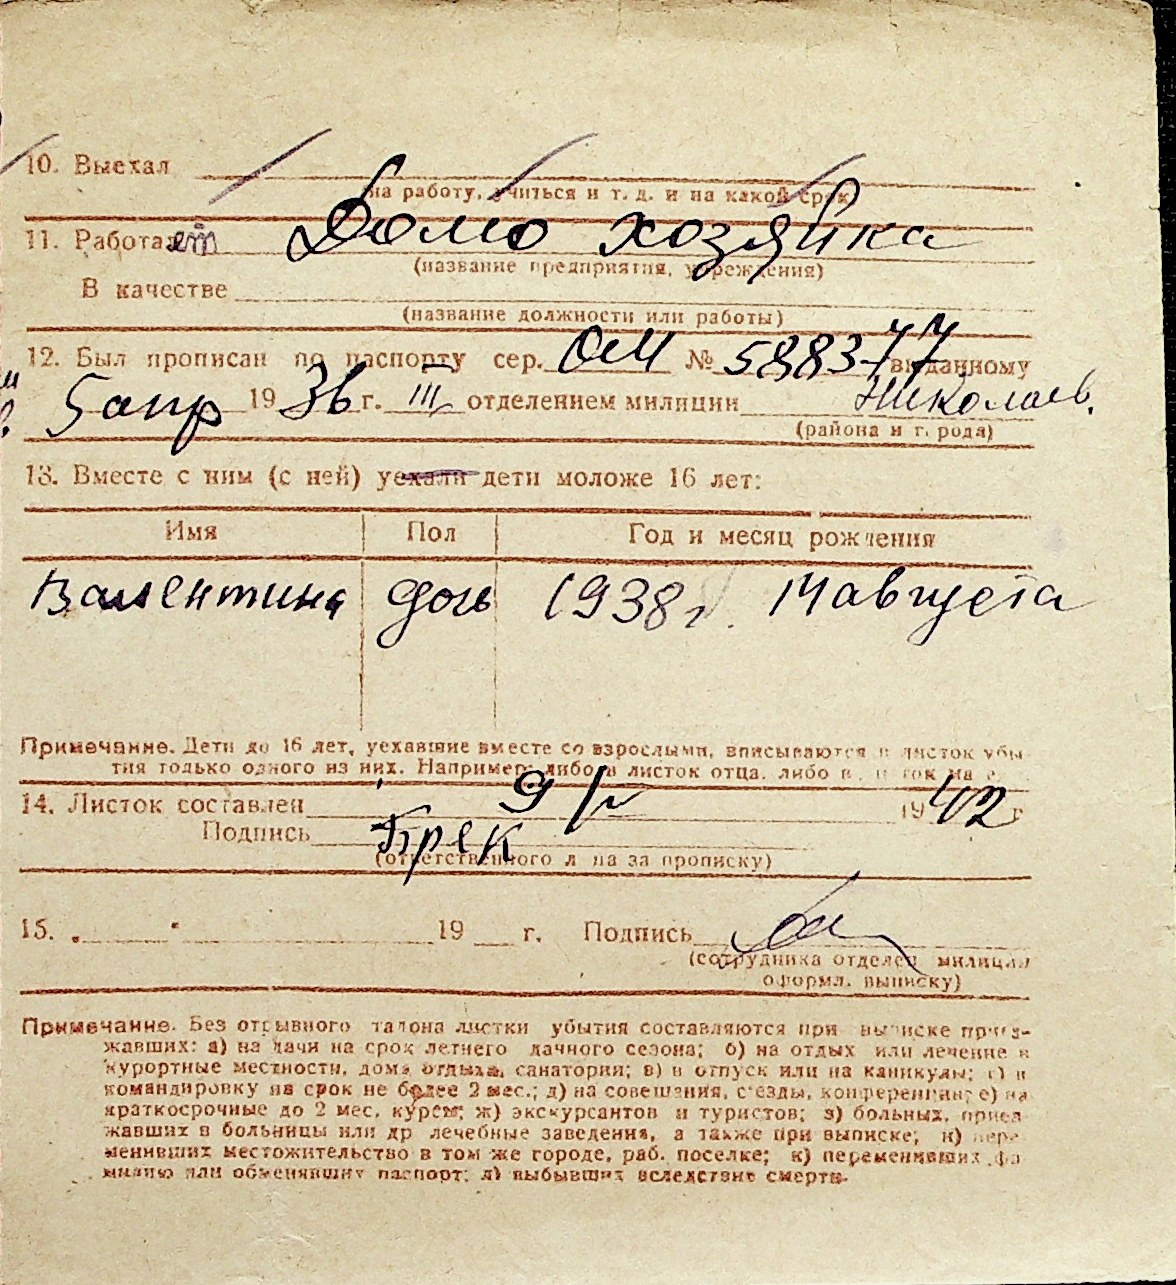 10. Выехал
на работу, учиться и т. д. и на какой срок
11. Работает Домо хозяйка
(название предприятия, учреждения)
В качестве
(название должности или работы)
12. Был прописан по паспорту сер. ОМ № 588377 выданному
5 апр 1936 г. III отделением милиции Николаев.
(района и города)
13. Вместе с ним (с ней) уехали дети моложе 16 лет:
Имя Пол Год и месяц рождения
Валентина дочь 1938 г. 14 августа
Примечание. Дети до 16 лет, уехавшие вместе со взрослыми, вписываются в листок убы-
тия только одного из них. Например: либо в листок отца, либо в
14. Листок составлен 9/ 1942 г
Подпись
(ответственного лица за прописку)
15. „ " 19 г. Подпись
(сотрудника отделен. милиции
оформл. выписку)
Примечание. Без отрывного талона листки убытия составляются при выписке приез-
жавших: а) на дачи на срок летнего дачного сезона; б) на отдых или лечение в
курортные местности, дома отдыха, санатории; в) в отпуск или на каникулы; г) в
командировку на срок не более 2 мес.; д) на совещания, с'езды, конференции; е) на
краткосрочные до 2 мес. курсы; ж) экскурсантов и туристов; з) больных, приез-
жавших в больницы или др лечебные заведения, а также при выписке; и) пере-
менивших местожительство в том же городе, раб. поселке; к) переменивших фа-
милию или обменявших паспорт; л) выбывших вследствие смерти.